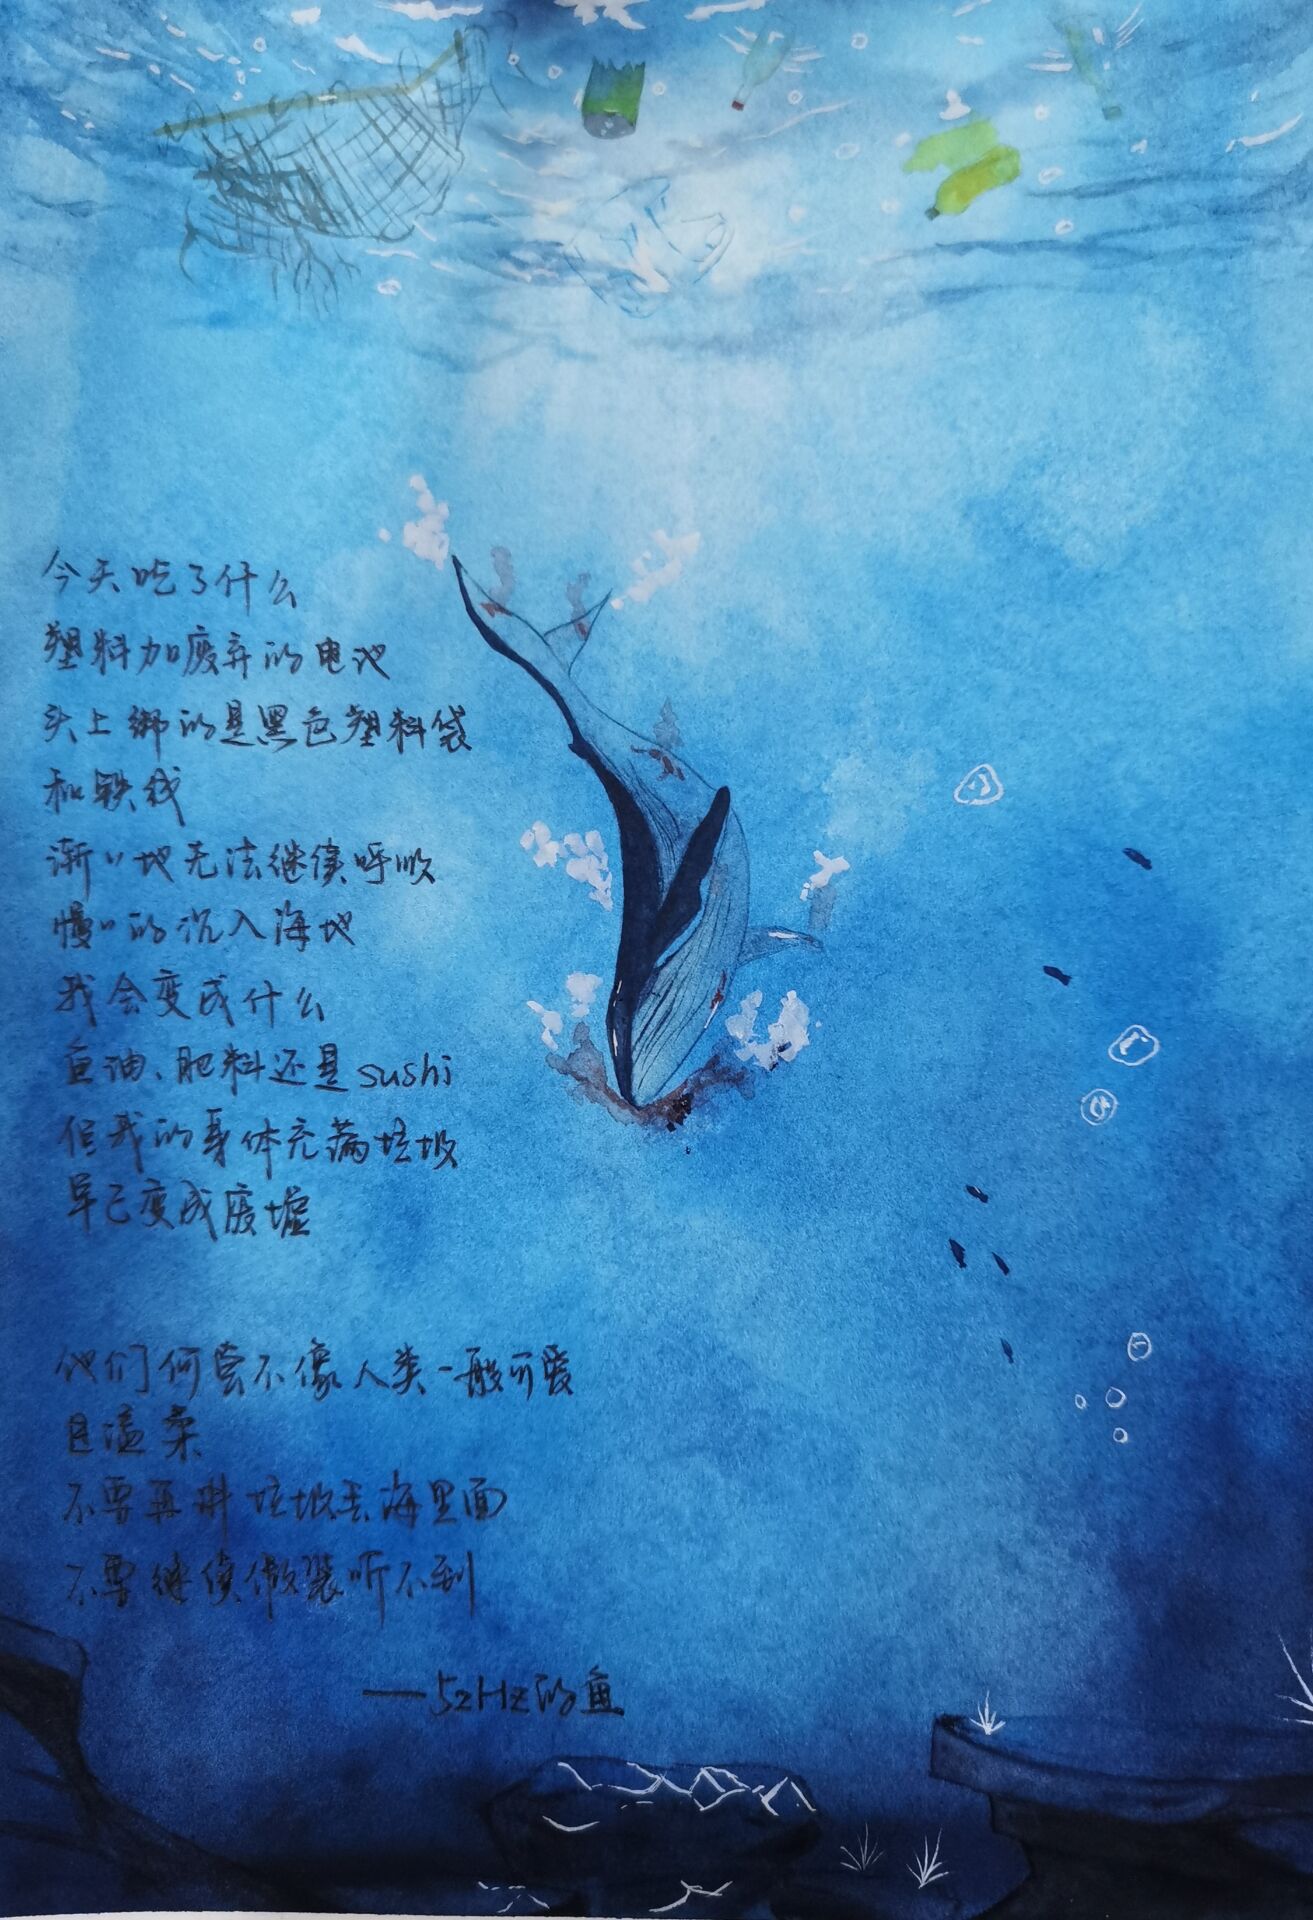 今天吃了什么
塑料加废弃的电池
头上绑的是黑色塑料袋
和铁线
渐〃地无法继续呼吸
慢〃的沉入海地
我会变成什么
鱼油、肥料还是sushi
但我的身体充满垃圾
早已变成废墟
他们何尝不像人类一般可爱
且温柔
不要再排垃圾去海里面
不要继续假装听不到
——52Hz的鱼